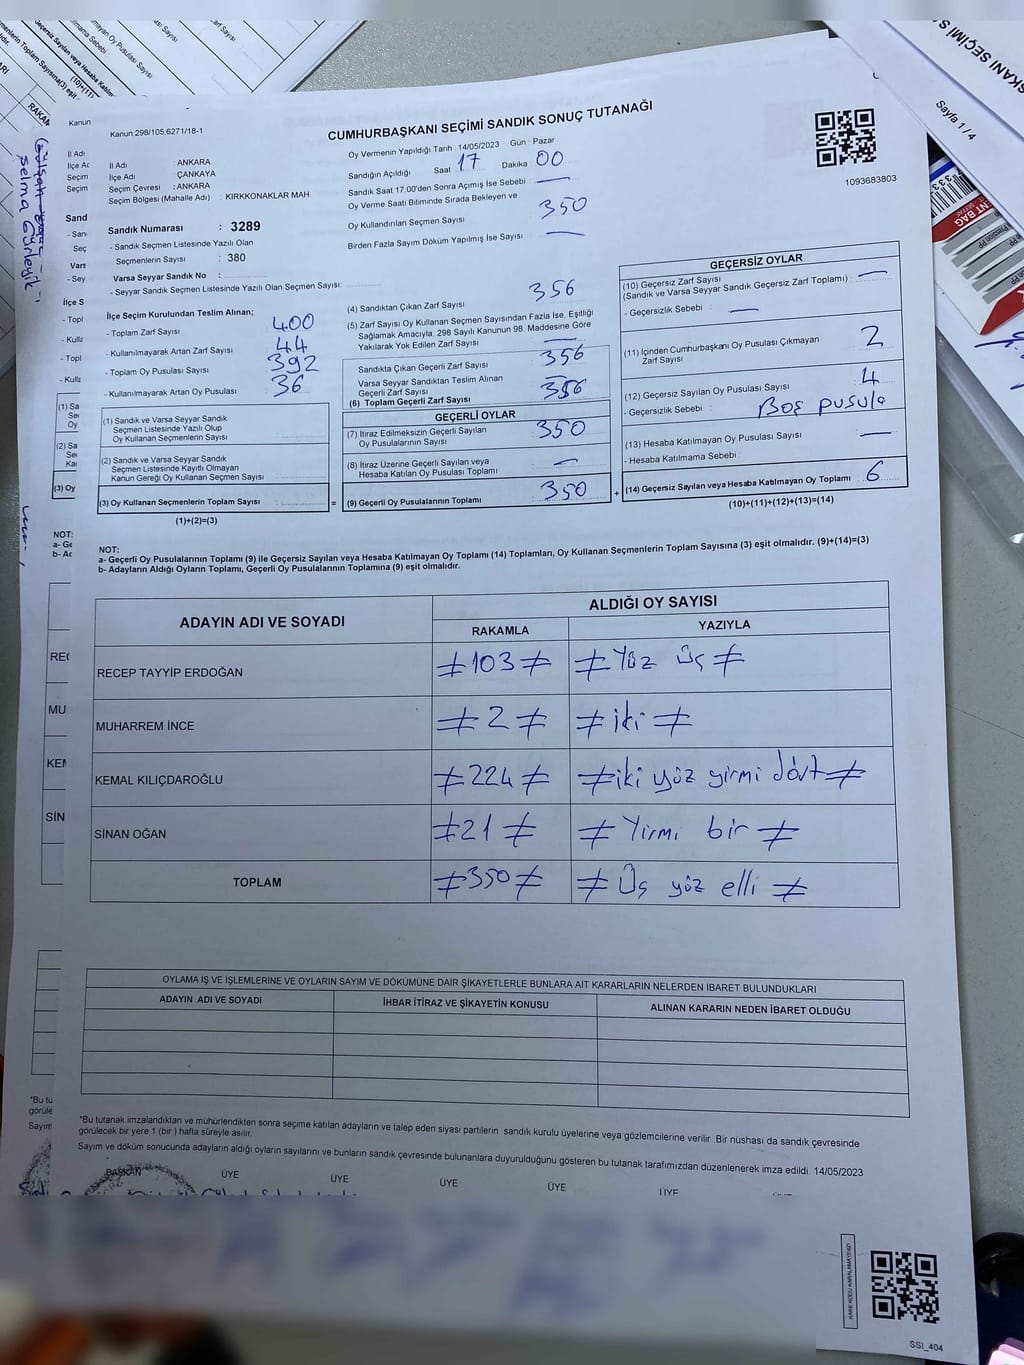 CUMHURBAŞKANI SEÇİMİ SANDIK SONUÇ TUTANAĞI
Kanun 298/105,6271/18-1
İl Adı : ANKARA
İlçe Adı : ÇANKAYA
Seçim Çevresi : ANKARA
Seçim Bölgesi (Mahalle Adı) : KIRKKONAKLAR MAH.
Oy Vermenin Yapıldığı Tarih : 14/05/2023 Gün : Pazar
Sandığın Açıldığı Saat : 17 Dakika : 00
Sandık Saat 17.00'den Sonra Açımış İse Sebebi —
Oy Verme Saati Bitiminde Sırada Bekleyen ve
Oy Kullandırılan Seçmen Sayısı 350
Birden Fazla Sayım Döküm Yapılmış İse Sayısı —
1093683803
Sandık Numarası : 3289
- Sandık Seçmen Listesinde Yazılı Olan
Seçmenlerin Sayısı : 380
Varsa Seyyar Sandık No :
- Seyyar Sandık Seçmen Listesinde Yazılı Olan Seçmen Sayısı:
İlçe Seçim Kurulundan Teslim Alınan;
- Toplam Zarf Sayısı 400
- Kullanılmayarak Artan Zarf Sayısı 44
- Toplam Oy Pusulası Sayısı 392
- Kullanılmayarak Artan Oy Pusulası 36
(1) Sandık ve Varsa Seyyar Sandık
Seçmen Listesinde Yazılı Olup
Oy Kullanan Seçmenlerin Sayısı
(2) Sandık ve Varsa Seyyar Sandık
Seçmen Listesinde Kayıtlı Olmayan
Kanun Gereği Oy Kullanan Seçmen Sayısı
(3) Oy Kullanan Seçmenlerin Toplam Sayısı =
(1)+(2)=(3)
(4) Sandıktan Çıkan Zarf Sayısı 356
(5) Zarf Sayısı Oy Kullanan Seçmen Sayısından Fazla İse, Eşitliği
Sağlamak Amacıyla, 298 Sayılı Kanunun 98. Maddesine Göre
Yakılarak Yok Edilen Zarf Sayısı —
Sandıkta Çıkan Geçerli Zarf Sayısı 356
Varsa Seyyar Sandıktan Teslim Alınan
Geçerli Zarf Sayısı
(6) Toplam Geçerli Zarf Sayısı 356
GEÇERLİ OYLAR
(7) İtiraz Edilmeksizin Geçerli Sayılan
Oy Pusulalarının Sayısı 350
(8) İtiraz Üzerine Geçerli Sayılan veya
Hesaba Katılan Oy Pusulası Toplamı —
(9) Geçerli Oy Pusulalarının Toplamı 350 +
GEÇERSİZ OYLAR
(10) Geçersiz Zarf Sayısı
(Sandık ve Varsa Seyyar Sandık Geçersiz Zarf Toplamı) : —
- Geçersizlik Sebebi : —
(11) İçinden Cumhurbaşkanı Oy Pusulası Çıkmayan
Zarf Sayısı 2
(12) Geçersiz Sayılan Oy Pusulası Sayısı 4
- Geçersizlik Sebebi : Boş pusula
(13) Hesaba Katılmayan Oy Pusulası Sayısı —
- Hesaba Katılmama Sebebi :
(14) Geçersiz Sayılan veya Hesaba Katılmayan Oy Toplamı 6
(10)+(11)+(12)+(13)=(14)
NOT:
a- Geçerli Oy Pusulalarının Toplamı (9) ile Geçersiz Sayılan veya Hesaba Katılmayan Oy Toplamı (14) Toplamları, Oy Kullanan Seçmenlerin Toplam Sayısına (3) eşit olmalıdır. (9)+(14)=(3)
b- Adayların Aldığı Oyların Toplamı, Geçerli Oy Pusulalarının Toplamına (9) eşit olmalıdır.
ADAYIN ADI VE SOYADI ALDIĞI OY SAYISI
RAKAMLA YAZIYLA
RECEP TAYYİP ERDOĞAN ≠103≠ ≠Yüz Üç≠
MUHARREM İNCE ≠2≠ ≠iki≠
KEMAL KILIÇDAROĞLU ≠224≠ ≠iki yüz yirmi dört≠
SİNAN OĞAN ≠21≠ ≠Yirmi bir≠
TOPLAM ≠350≠ ≠Üç yüz elli≠
OYLAMA İŞ VE İŞLEMLERİNE VE OYLARIN SAYIM VE DÖKÜMÜNE DAİR ŞİKAYETLERLE BUNLARA AİT KARARLARIN NELERDEN İBARET BULUNDUKLARI
ADAYIN ADI VE SOYADI İHBAR İTİRAZ VE ŞİKAYETİN KONUSU ALINAN KARARIN NEDEN İBARET OLDUĞU
*Bu tutanak imzalandıktan ve mühürlendikten sonra seçime katılan adayların ve talep eden siyasi partilerin sandık kurulu üyelerine veya gözlemcilerine verilir. Bir nüshası da sandık çevresinde
görülecek bir yere 1 (bir) hafta süreyle asılır.
Sayım ve döküm sonucunda adayların aldığı oyların sayılarını ve bunların sandık çevresinde bulunanlara duyurulduğunu gösteren bu tutanak tarafımızdan düzenlenerek imza edildi. 14/05/2023
BAŞKAN ÜYE ÜYE ÜYE ÜYE ÜYE ÜYE
SSI_404
Sayfa 1 / 4